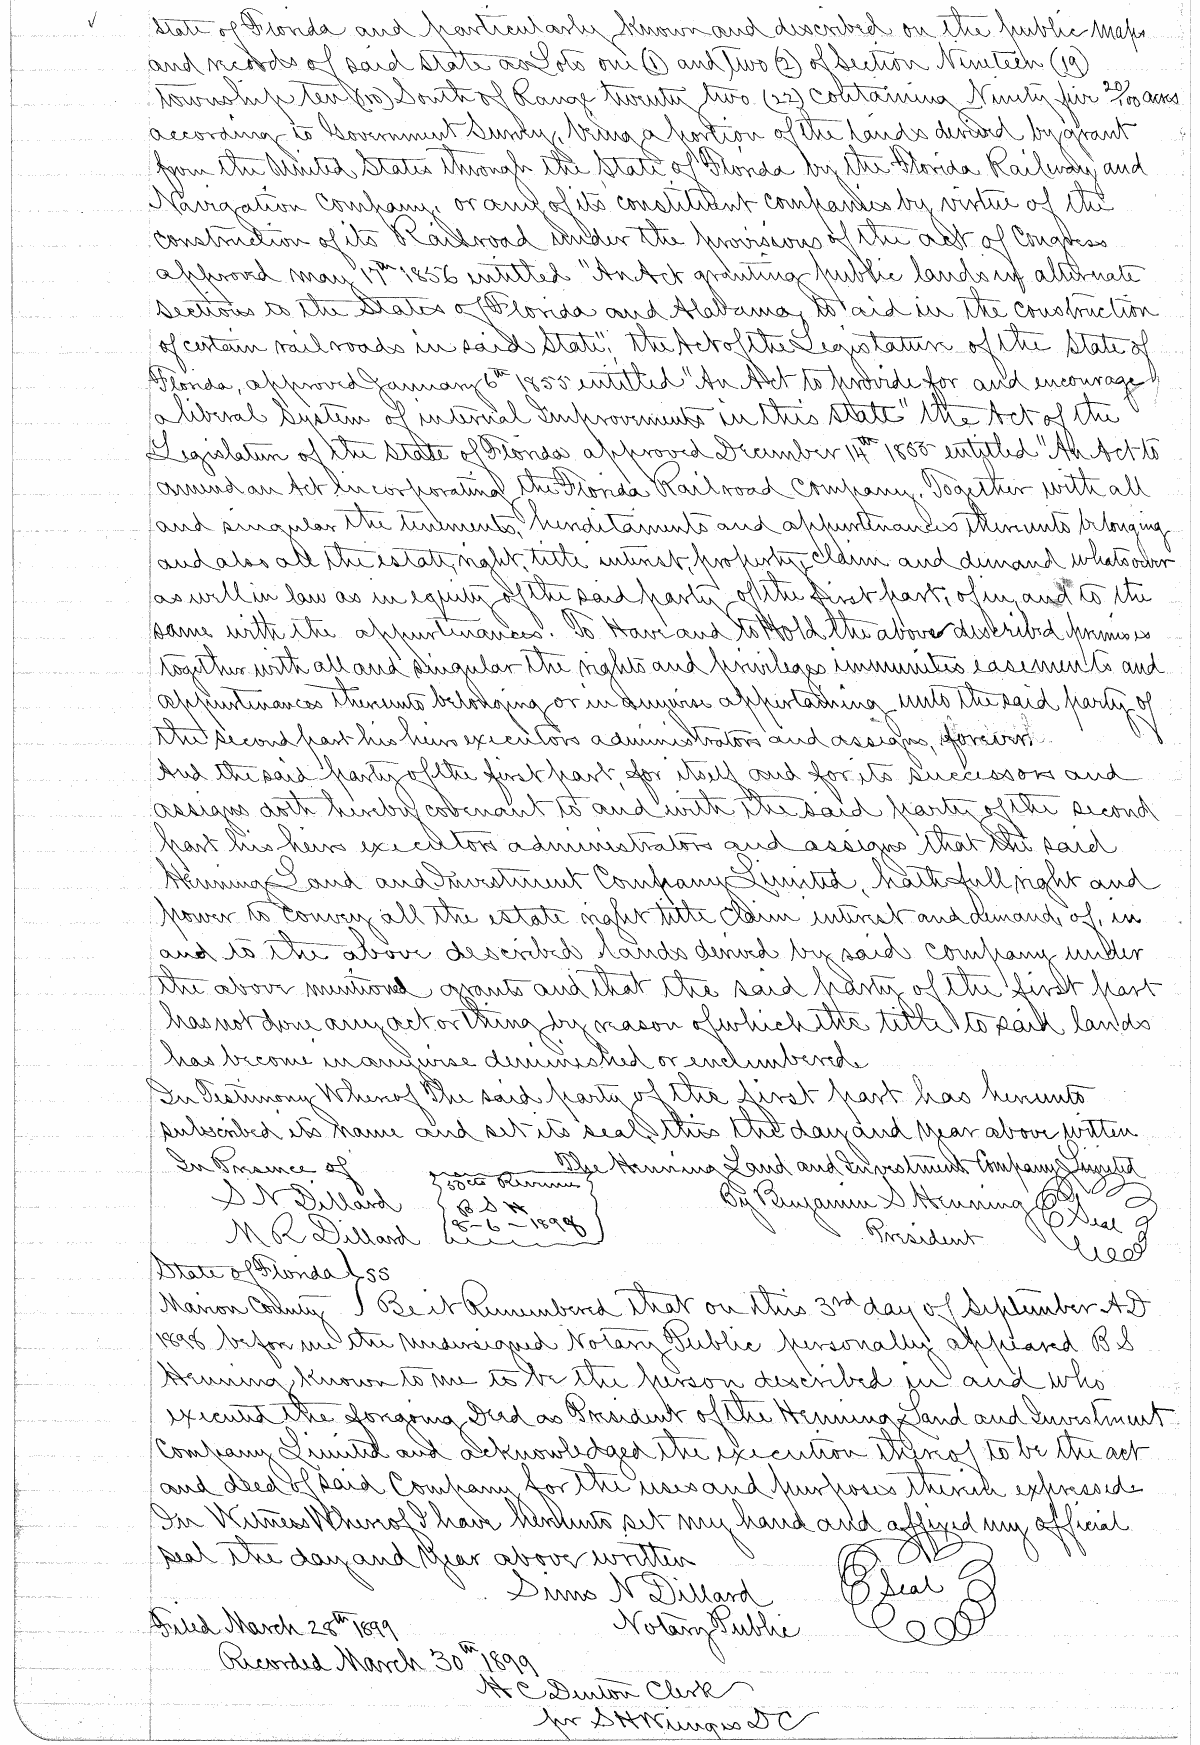 State of Florida and particularly known and described on the public maps
and records of said State as Lots one (1) and Two (2) of Section Nineteen (19)
township ten (10) South of Range twenty two (22) containing Ninety five 20/100 acres
according to Government Survey, being a portion of the lands derived by grant
from the United States through the State of Florida by the Florida Railway and
Navigation Company, or any of its constituent companies by virtue of the
construction of its Railroad under the provisions of the act of Congress
approved may 17th 1856 entitled "An Act granting public lands in alternate
sections to the States of Florida and Alabama, to aid in the construction
of certain railroads in said State", the Act of the Legislature of the State of
Florida, approved January 6th 1855 entitled "An Act to provide for and encourage
a liberal System of internal Improvements in this State" the Act of the
Legislature of the State of Florida approved December 14th 1855 entitled "An Act to
amend an Act Incorporating the Florida Railroad Company. Together with all
and singular the tenements, hereditaments and appurtenances thereunto belonging
and also all the estate, right, title interest, property, claim and demand whatsoever
as well in law as in equity of the said party of the first part, of in, and to the
same with the appurtenances. To Have and to Hold the above described premises
together with all and singular the rights and privileges immunities easements and
appurtenances thereunto belonging or in anywise appertaining unto the said party of
the second part his heirs executors administrators and assigns, forever.
And the said party of the first part, for itself and for its successors and
assigns doth hereby covenant to and with the said party of the second
part his heirs executors administrators and assigns that the said
Henning Land and Investment Company Limited, hath full right and
power to convey all the estate right title claim interest and demand, of, in
and to the above described lands derived by said Company under
the above mentioned grants and that the said party of the first part
has not done any act or thing by reason of which the title to said lands
has become in anywise deminished or encumbered.
In Testimony Whereof The said party of the first part has hereunto
subscribed its name and set its seal, this the day and year above written
In Presence of The Henning Land and Investment Company Limited
S N Dillard Revenue By Benjamin S Henning
B S H 8-6-1898 Seal
M R Dillard President
State of Florida } ss
Marion County } Be it Remembered that on this 3rd day of September A.D
1898 before me the undersigned Notary Public personally appeared B S
Henning known to me to be the person described in and who
executed the foregoing Deed as President of the Henning Land and Investment
Company Limited and acknowledged the execution thereof to be the act
and deed of said Company for the uses and purposes therein expressed.
In Witness Whereof I have hereunto set my hand and affixed my official
seal the day and year above written
Sims N Dillard Seal
Notary Public
Filed March 28th 1899
Recorded March 30th 1899
H C Denton Clerk
pr S H Wienges D C